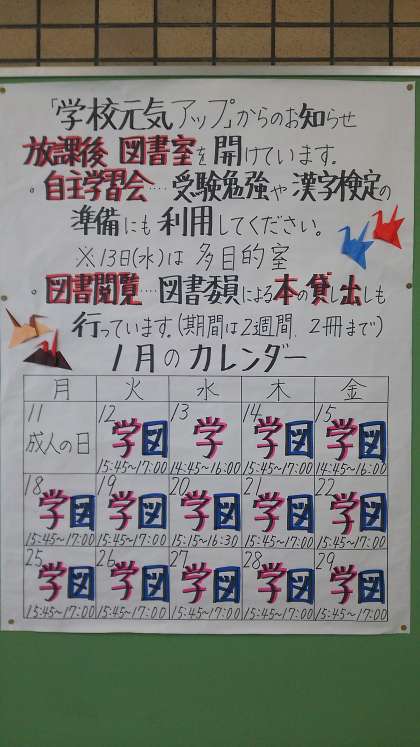 「学校元気アップ」からのお知らせ
放課後 図書室を開けています。
・自主学習会‥‥受験勉強や漢字検定の
準備にも利用してください。
※13日(水)は多目的室
・図書閲覧‥‥図書委員による本の貸し出しも
行っています。(期間は2週間、2冊まで)
1月のカレンダー
月 火 水 木 金
11 12 13 14 15
成人の日 学図 学 学図 学図
15:45~17:00 14:45~16:00 15:45~17:00 14:45~16:00
18 19 20 21 22
学図 学図 学図 学図 学図
15:45~17:00 15:45~17:00 15:15~16:30 15:45~17:00 15:45~17:00
25 26 27 28 29
学図 学図 学図 学図 学図
15:45~17:00 15:45~17:00 15:45~17:00 15:45~17:00 15:45~17:00